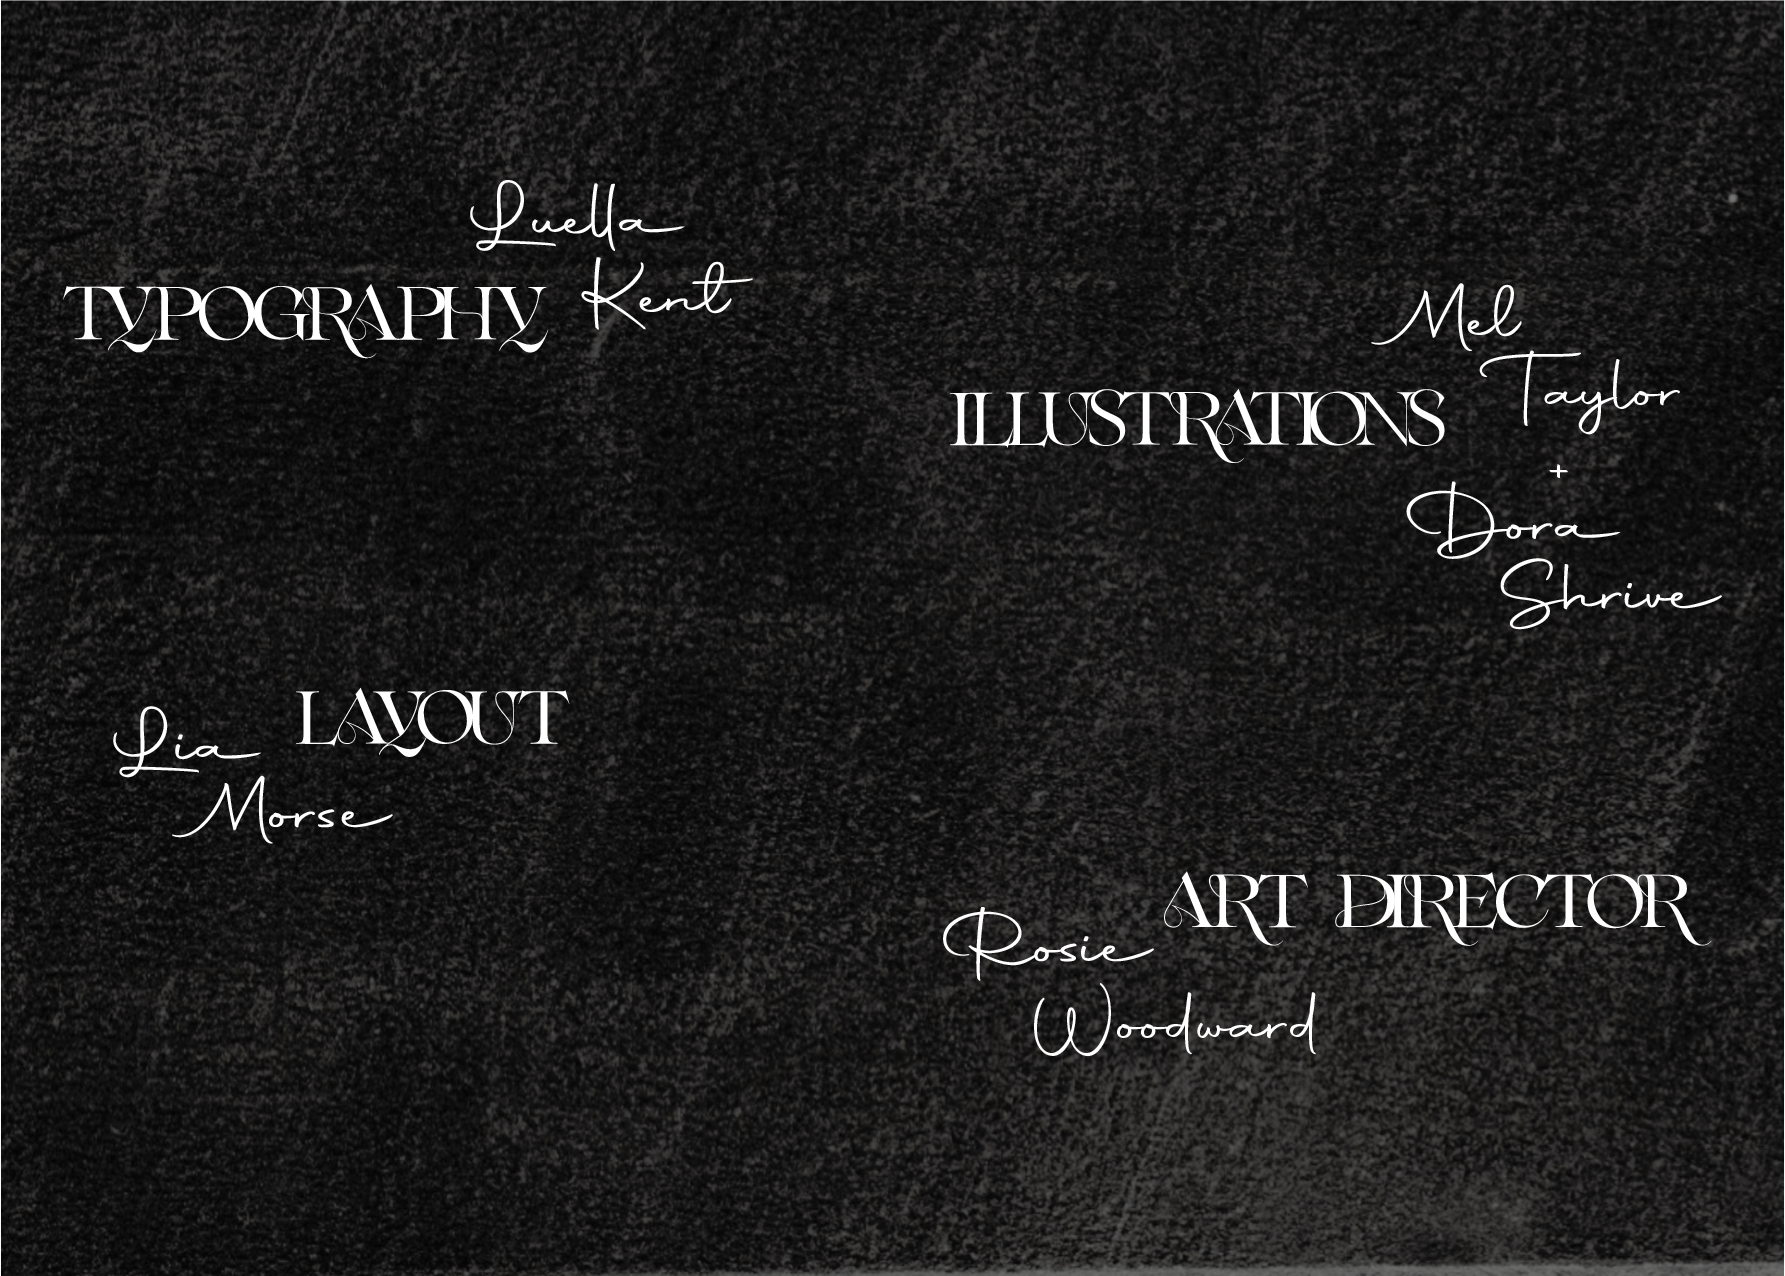 Luella
TYPOGRAPHY Kent
Mel
Taylor
ILLUSTRATIONS
+
Dora
Shrive
LAYOUT
Lia
Morse
ART DIRECTOR
Rosie
Woodward